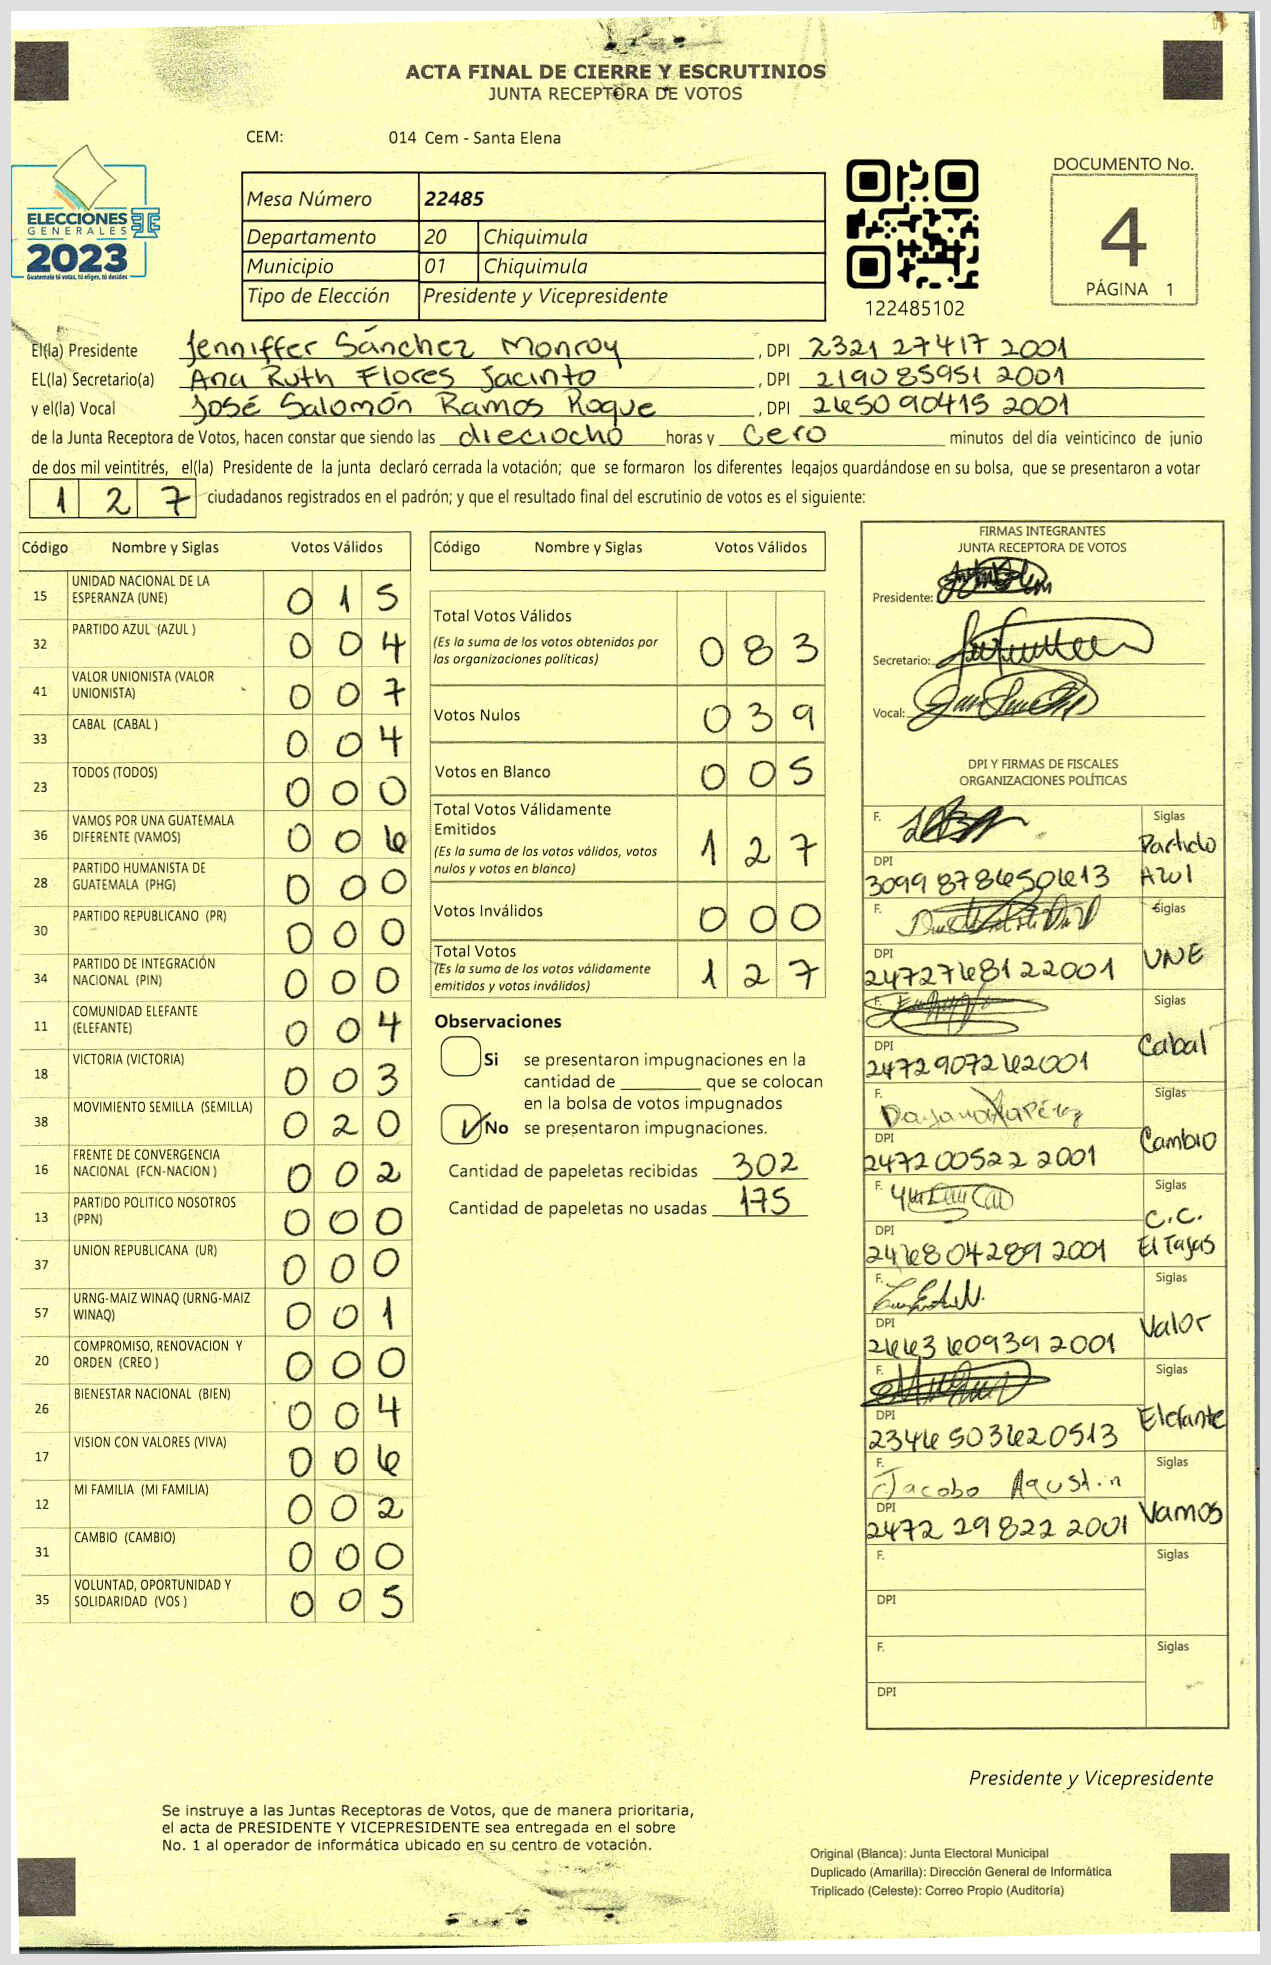 ACTA FINAL DE CIERRE Y ESCRUTINIOS
JUNTA RECEPTORA DE VOTOS
CEM: 014 Cem - Santa Elena
ELECCIONES
GENERALES
2023
Guatemala tú votas, tú eliges, tú decides
Mesa Número 22485
Departamento 20 Chiquimula
Municipio 01 Chiquimula
Tipo de Elección Presidente y Vicepresidente
122485102
DOCUMENTO No.
4
PÁGINA 1
El(la) Presidente Jenniffer Sánchez Monroy, DPI 2321 27417 2001
EL(la) Secretario(a) Ana Ruth Flores Jacinto, DPI 219085951 2001
y el(la) Vocal José Salomón Ramos Roque, DPI 265090415 2001
de la Junta Receptora de Votos, hacen constar que siendo las dieciocho horas y cero minutos del día veinticinco de junio
de dos mil veintitrés, el(la) Presidente de la junta declaró cerrada la votación; que se formaron los diferentes legajos guardándose en su bolsa, que se presentaron a votar
1 2 7 ciudadanos registrados en el padrón; y que el resultado final del escrutinio de votos es el siguiente:
Código Nombre y Siglas Votos Válidos
15 UNIDAD NACIONAL DE LA ESPERANZA (UNE) 0 1 5
32 PARTIDO AZUL (AZUL ) 0 0 4
41 VALOR UNIONISTA (VALOR UNIONISTA) 0 0 7
33 CABAL (CABAL ) 0 0 4
23 TODOS (TODOS) 0 0 0
36 VAMOS POR UNA GUATEMALA DIFERENTE (VAMOS) 0 0 6
28 PARTIDO HUMANISTA DE GUATEMALA (PHG) 0 0 0
30 PARTIDO REPUBLICANO (PR) 0 0 0
34 PARTIDO DE INTEGRACIÓN NACIONAL (PIN) 0 0 0
11 COMUNIDAD ELEFANTE (ELEFANTE) 0 0 4
18 VICTORIA (VICTORIA) 0 0 3
38 MOVIMIENTO SEMILLA (SEMILLA) 0 2 0
16 FRENTE DE CONVERGENCIA NACIONAL (FCN-NACION ) 0 0 2
13 PARTIDO POLITICO NOSOTROS (PPN) 0 0 0
37 UNION REPUBLICANA (UR) 0 0 0
57 URNG-MAIZ WINAQ (URNG-MAIZ WINAQ) 0 0 1
20 COMPROMISO, RENOVACION Y ORDEN (CREO ) 0 0 0
26 BIENESTAR NACIONAL (BIEN) 0 0 4
17 VISION CON VALORES (VIVA) 0 0 6
12 MI FAMILIA (MI FAMILIA) 0 0 2
31 CAMBIO (CAMBIO) 0 0 0
35 VOLUNTAD, OPORTUNIDAD Y SOLIDARIDAD (VOS ) 0 0 5
Código Nombre y Siglas Votos Válidos
Total Votos Válidos
(Es la suma de los votos obtenidos por las organizaciones políticas) 0 8 3
Votos Nulos 0 3 9
Votos en Blanco 0 0 5
Total Votos Válidamente Emitidos
(Es la suma de los votos válidos, votos nulos y votos en blanco) 1 2 7
Votos Inválidos 0 0 0
Total Votos
(Es la suma de los votos válidamente emitidos y votos inválidos) 1 2 7
Observaciones
Si se presentaron impugnaciones en la
cantidad de ________ que se colocan
en la bolsa de votos impugnados
No se presentaron impugnaciones.
Cantidad de papeletas recibidas 302
Cantidad de papeletas no usadas 175
FIRMAS INTEGRANTES
JUNTA RECEPTORA DE VOTOS
Presidente:
Secretario:
Vocal:
DPI Y FIRMAS DE FISCALES
ORGANIZACIONES POLÍTICAS
F. Siglas Partido Azul
DPI 3099 878650613
F. Siglas UNE
DPI 2472768122001
F. Siglas Cabal
DPI 2472907262001
F. Siglas Cambio
DPI 247200522 2001
F. Siglas C.C. El Tajas
DPI 246804289 2001
F. Siglas Valor
DPI 2663609392001
F. Siglas Elefante
DPI 2346503620513
F. Jacobo Agustin Siglas Vamos
DPI 2472 29822 2001
F. Siglas
DPI
F. Siglas
DPI
Presidente y Vicepresidente
Se instruye a las Juntas Receptoras de Votos, que de manera prioritaria,
el acta de PRESIDENTE Y VICEPRESIDENTE sea entregada en el sobre
No. 1 al operador de informática ubicado en su centro de votación.
Original (Blanca): Junta Electoral Municipal
Duplicado (Amarilla): Dirección General de Informática
Triplicado (Celeste): Correo Propio (Auditoría)